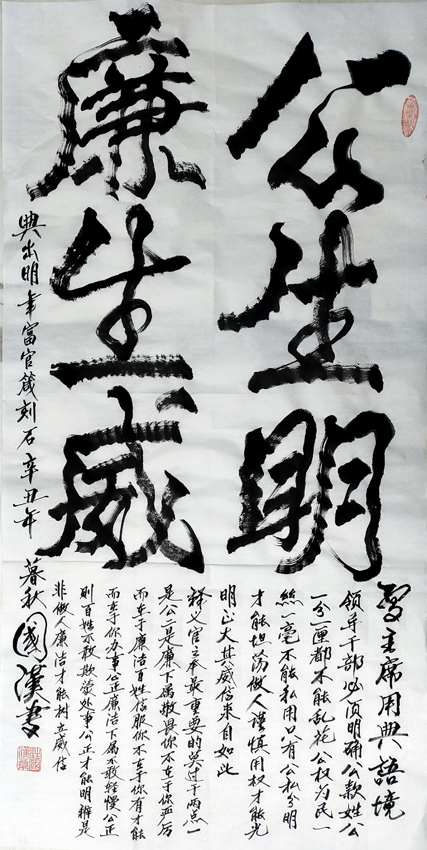 公生明
廉生威
典出明年富官箴刻石辛丑年
暮秋國漢書
習主席用典語境
领导干部必须明确公款姓公
一分一厘都不能乱花公权为民一
丝一毫不能私用只有公私分明
才能坦荡做人谨慎用权才能光
明正大其威信来自如此
释义官之本最重要的莫过于两点一
是公二是廉下属敬畏你不在于你严厉
而在于廉洁百姓信服你不在乎你有才能
而在于你办事公正廉洁下属不敢轻慢公正
则百姓不敢欺蒙处事公正才能明辨是
非做人廉洁才能树立威信